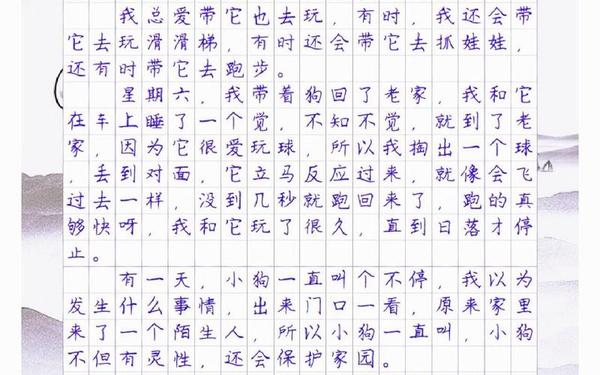 我总爱带它也去玩，有时，我还会带
它去玩滑滑梯，有时还会带它去抓娃娃，
还有时带它去跑步。
星期六，我带着狗回了老家，我和它
在车上睡了一个觉，不知不觉，就到了老
家，因为它很爱玩球，所以我掏出一个球
，丢到对面，它立马反应过来，就像会飞
过去一样，没到几秒就跑回来了，跑的真
够快呀，我和它玩了很久，直到日落才停
止。
有一天，小狗一直叫个不停，我以为
发生什么事情，出来门口一看，原来家里
来了一个陌生人，所以小狗一直叫，小狗
不但有灵性，还会保护家园。